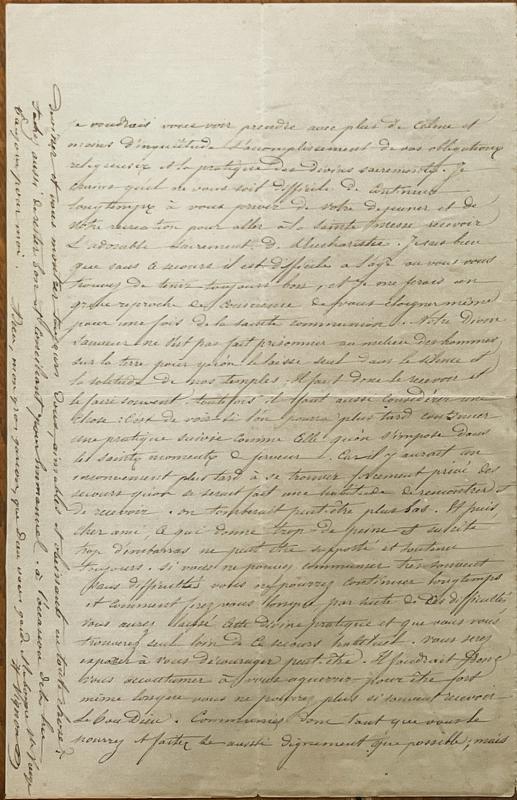 Je voudrais vous voir prendre avec plus de calme et
moins d'inquiétude l'accomplissement de vos obligations
religieuses et la pratique des divins sacrements. Je
crains qu'il ne vous soit difficile de continuer
longtemps à vous priver de votre dejeuner et de
votre recreation pour aller à la sainte messe recevoir
L'adorable sacrement de l'eucharistie. Je sais bien
que sans ce secours il est difficile a l'age ou vous vous
trouvez de tenir toujours bon, et je me ferais un
grave reproche de conscience de vous eloigner même
pour une fois de la sainte communion. Notre Divin
Sauveur ne s'est pas fait prisonnier au milieu des hommes
sur la terre pour qu'on le laisse seul dans le silence et
la solitude de nos temples. Il faut donc le recevoir et
le faire souvent toutefois il faut aussi considérer une
chose: C'est de voir si l'on pourra plus tard continuer
une pratique suivie comme celle qu'on s'impose dans
les saints moments de ferveur. Car il y aurait un
inconvenient plus tard à se trouver forcement privé des
secours qu'on se serait fait une habitude de rencontrer et
de recevoir. on tomberait peut être plus bas. Et puis
cher ami, ce qui donne trop de peine et suscite
trop d'embarras ne peut être supporté et soutenu
toujours. Si vous ne pouvez communier très souvent
sans difficultés vous ne pourrez continuer longtemps
et comment ferez vous lorsque par suite de ces difficultés
vous aurez laissé cette divine pratique et que vous vous
trouverez seul loin de ce secours habituel. vous serez
exposer à vous décourager peut être. Il faudrait donc
vous accoutumer à être fort
même lorsque vous ne pourrez plus si souvent recevoir
Le Bon Dieu. Communiez donc tant que vous le
pourrez et faites le aussi dignement que possible; mais
et vous montrer toujours doux, aimable et obeissant en toute chose
aussi de rester bon et conseillant pour Emmanuel. à l'occasion de la
toujours pour moi. Adieu, mon gros garçon que dieu vous garde